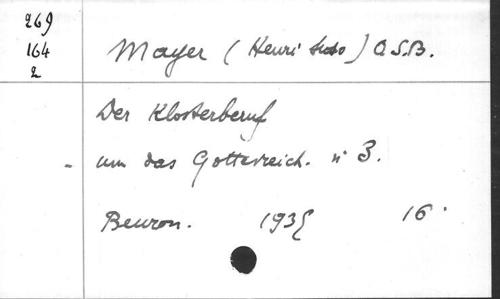 269
164
2
Mayer (Henri Suso) O.S.B.
Der Klosterberuf
- um das Gottesreich. n° 3.
Beuron. 1935 16°